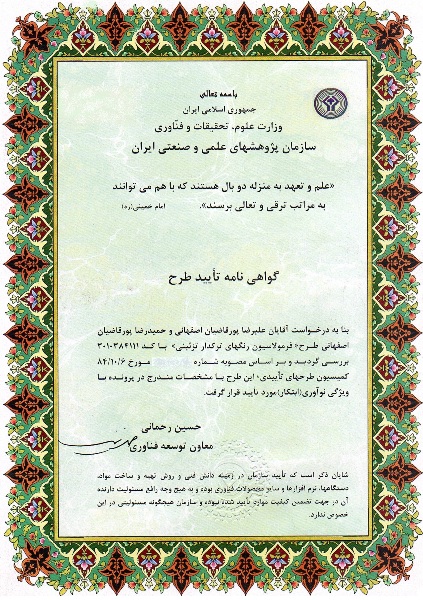 باسمه تعالی
جمهوری اسلامی ایران
وزارت علوم، تحقیقات و فنّاوری
سازمان پژوهشهای علمی و صنعتی ایران
«علم و تعهد به منزله دو بال هستند که با هم می توانند
به مراتب ترقی و تعالی برسند». امام خمینی(ره)
گواهی نامه تأیید طرح
بنا به درخواست آقایان علیرضا پورقاضیان اصفهانی و حمیدرضا پورقاضیان
اصفهانی طرح« فرمولاسیون رنگهای ترکدار تزئینی» با کد ۳۰۱۰۳۸۴۱۱۱
بررسی گردید و بر اساس مصوبه شماره مورخ ۸۴/۱۰/۶
کمیسیون طرحهای تأییدی، این طرح با مشخصات مندرج در پرونده با
ویژگی نوآوری(ابتکار)مورد تایید قرار گرفت.
حسین رحمانی
معاون توسعه فناوری
شایان ذکر است که تأیید سازمان در زمینه دانش فنی و روش تهیه و ساخت مواد،
دستگاهها، نرم افزارها و سایر محصولات فناوری بوده و به هیچ وجه رافع مسئولیت دارنده
آن در جهت تضمین کیفیت موارد تأیید شده نبوده و سازمان هیچگونه مسئولیتی در این
خصوص ندارد.